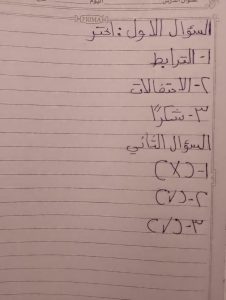 PRIMA
السؤال الاول : اختر
١- الترابط
٢- الاحتفالات
٣- شكرًا
السؤال الثاني
١- (X)
٢- (√)
٣- (√)